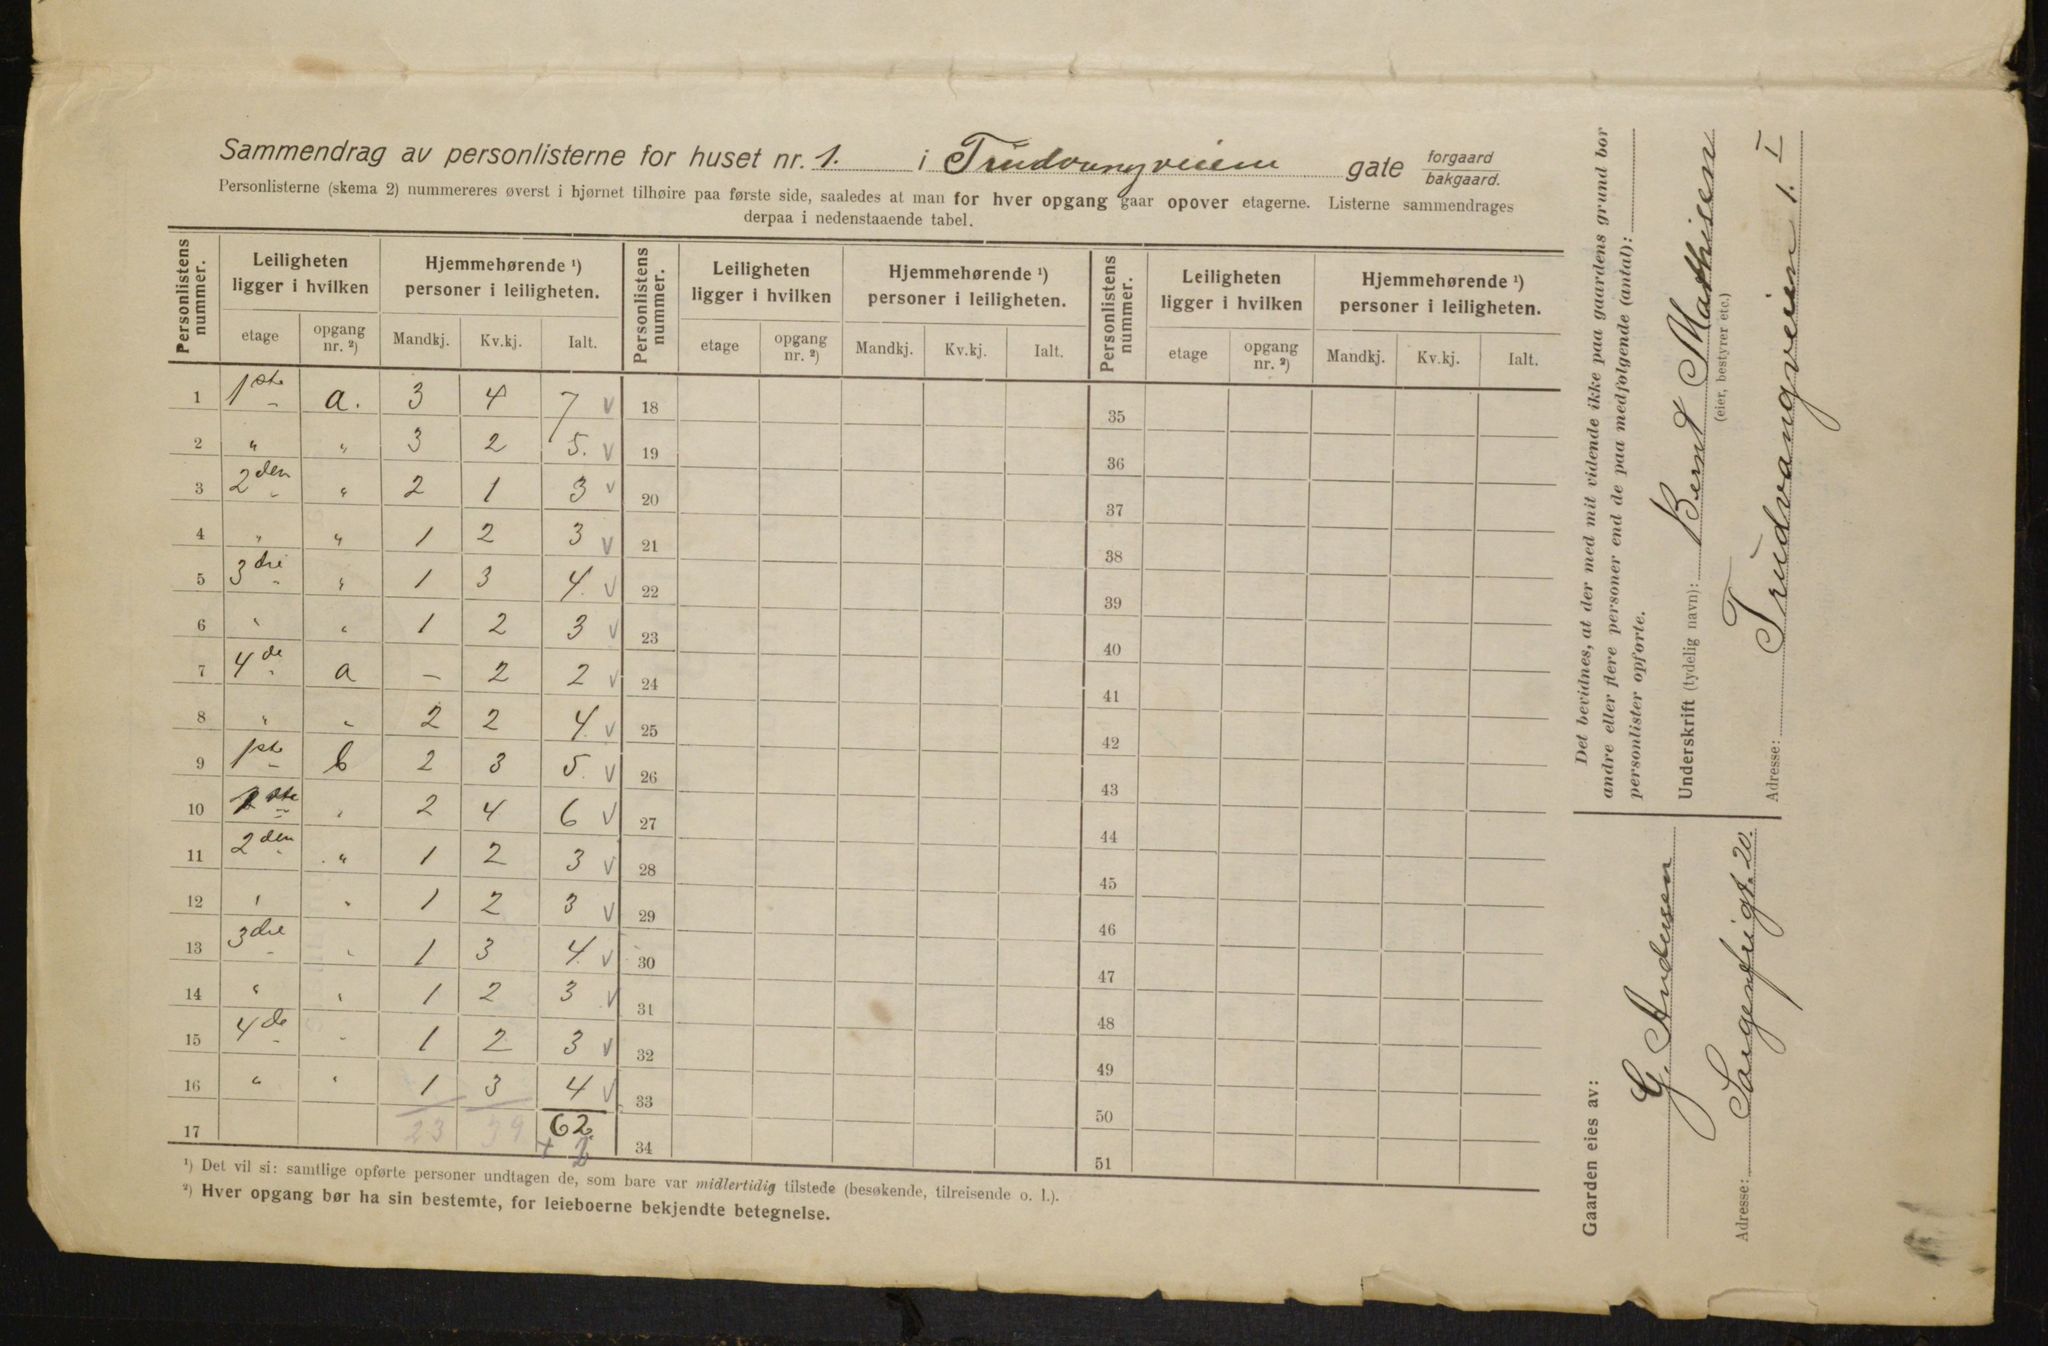 Sammendrag av personlisterne for huset nr. 1. i Trudvangveien gate forgaard bakgaard.
Personlisterne (skema 2) nummereres øverst i hjørnet tilhøire paa første side, saaledes at man for hver opgang gaar opover etagerne. Listerne sammendrages
derpaa i nedenstaaende tabel.
Personlistens nummer. Leiligheten ligger i hvilken Hjemmehørende ¹) personer i leiligheten. Personlistens nummer. Leiligheten ligger i hvilken Hjemmehørende ¹) personer i leiligheten. Personlistens nummer. Leiligheten ligger i hvilken Hjemmehørende ¹) personer i leiligheten.
etage opgang nr. ²) Mandkj. Kv.kj. Ialt. etage opgang nr. ²) Mandkj. Kv.kj. Ialt. etage opgang nr. ²) Mandkj. Kv.kj. Ialt.
1 1ste a. 3 4 7 v 18 35
2 " " 3 2 5. v 19 36
3 2den " 2 1 3 v 20 37
4 " " 1 2 3 v 21 38
5 3die " 1 3 4. v 22 39
6 " " 1 2 3 v 23 40
7 4de a – 2 2 v 24 41
8 " " 2 2 4. v 25 42
9 1ste b 2 3 5. v 26 43
10 1ste " 2 4 6 v 27 44
11 2den " 1 2 3 v 28 45
12 " " 1 2 3 v 29 46
13 3die " 1 3 4. v 30 47
14 " " 1 2 3 v 31 48
15 4de " 1 2 3 v 32 49
16 " " 1 3 4 v 33 50
17 23 39 62. 34 51
+ 2
¹) Det vil si: samtlige opførte personer undtagen de, som bare var midlertidig tilstede (besøkende, tilreisende o. l.).
²) Hver opgang bør ha sin bestemte, for leieboerne bekjendte betegnelse.
Det bevidnes, at der med mit vidende ikke paa gaardens grund bor
andre eller flere personer end de paa medfølgende (antal):
personlister opførte.
Underskrift (tydelig navn): Bernt Mathisen
(eier, bestyrer etc.)
Adresse: Trudvangveien 1. I
Gaarden eies av:
G. Andersen
Adresse: Sorgenfrigt. 20.